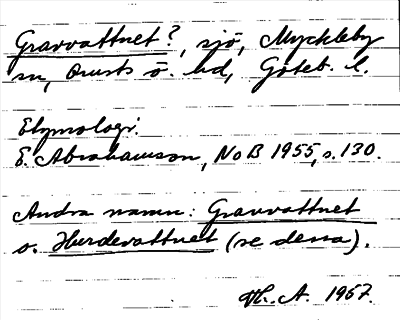 Gravvattnet?, sjö, Myckleby
sn, Orusts ö. hd, Göteb. l.
Etymologi.
E. Abrahamson, NoB 1955, s. 130.
Andra namn: Gravvattnet
o. Hurdevattnet (se dessa).
Th. A. 1957.